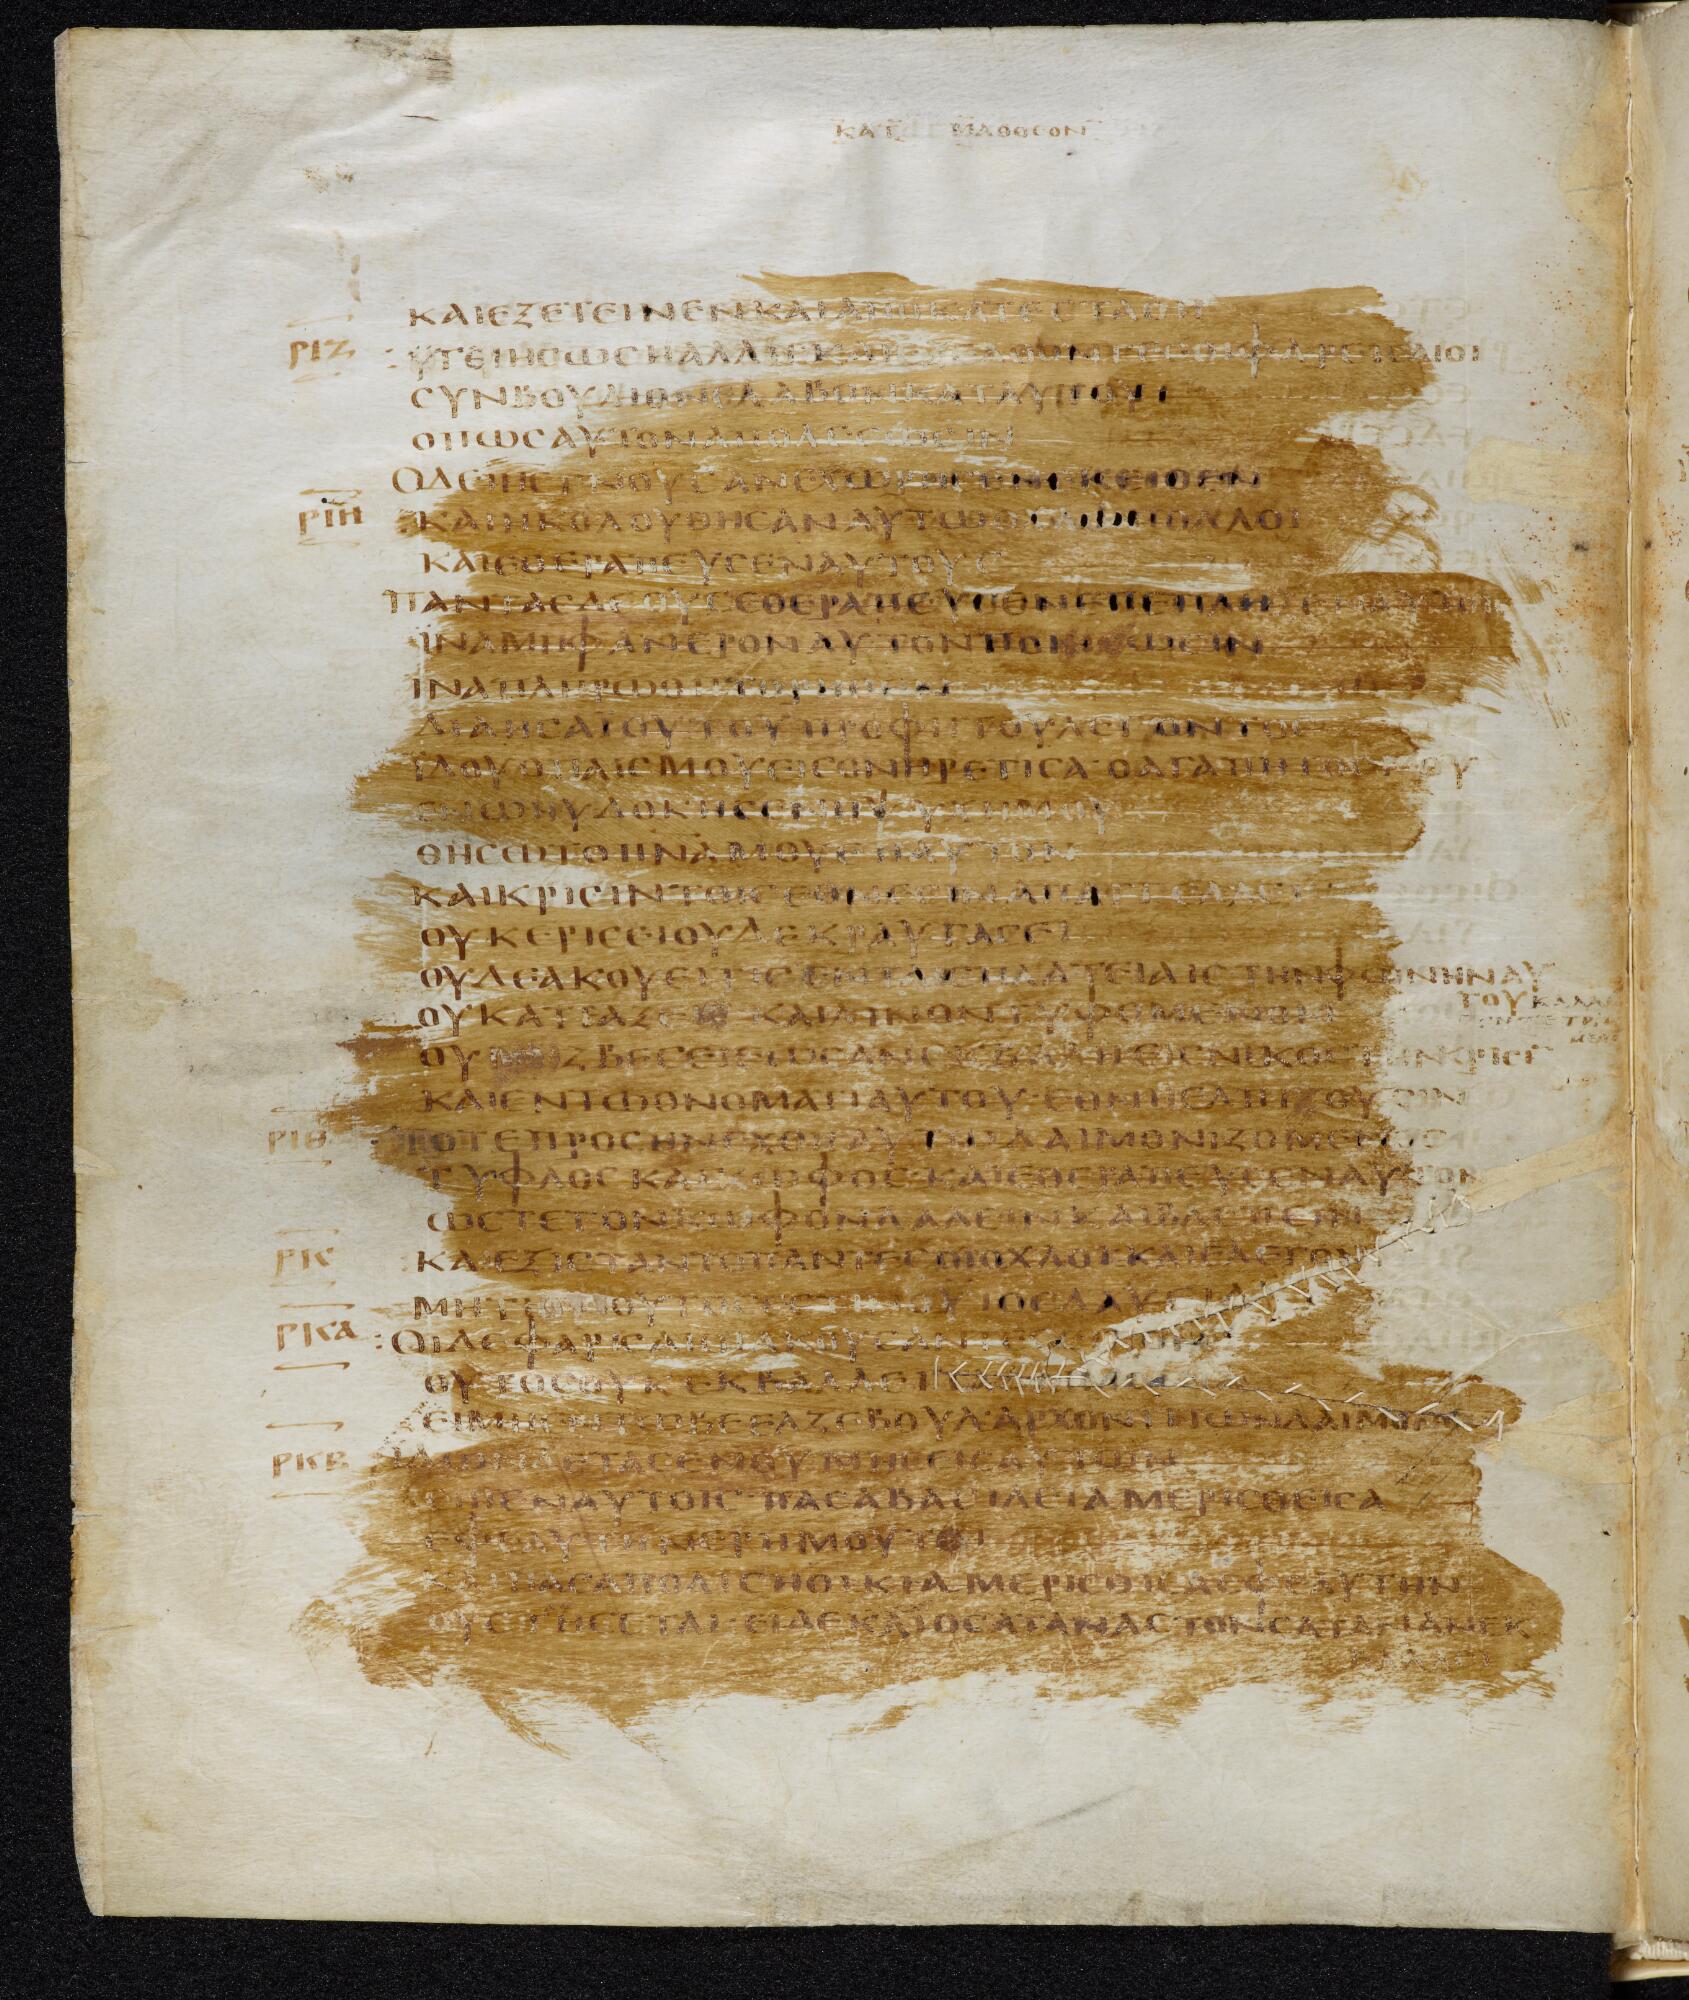 ΚΑΤ ΜΑΘΘΕΟΝ
ΚΑΙΕΞΕΤΕΙΝΕΝΚΑΙΑΠΟΚΑΤΕϹΤΑΘΗ
ΡΙΖ :ΥΓΕΙΗϹΩϹΗΑΛΛΗ ΦΑΡΕΙϹΑΙΟΙ
ϹΥΝΒΟΥΛΙΟΝΕΛΑΒΟΝΚΑΤΑΥΤΟΥ
ΟΠΩϹΑΥΤΟΝΑΠΟΛΕϹΩϹΙΝ
ΟΔΕΙΗϹΓΝΟΥϹΑΝΕΧΩΡΗϹΕΝΕΚΕΙΘΕΝ
ΡΙΗ :ΚΑΙΗΚΟΛΟΥΘΗϹΑΝΑΥΤΩ ΟΧΛΟΙ
ΚΑΙΕΘΕΡΑΠΕΥϹΕΝΑΥΤΟΥϹ
ΠΑΝΤΑϹΔΕΟΥϹΕΘΕΡΑΠΕΥϹΕΝΕΠΕΠΛΗΞΕΝΑΥΤΟΙϹ
ΙΝΑΜΗΦΑΝΕΡΟΝΑΥΤΟΝΠΟΙΩϹΙΝ
ΙΝΑΠΛΗΡΩΘΗΤΟΡΗΘΕΝ
ΔΙΑΗϹΑΪΟΥΤΟΥΠΡΟΦΗΤΟΥΛΕΓΟΝΤΟϹ
ΪΔΟΥΟΠΑΙϹΜΟΥΕΙϹΟΝΗΡΕΤΙϹΑ·ΟΑΓΑΠΗΤΟϹΜΟΥ
ΕΝΩΗΥΔΟΚΗϹΕΝΗΨΥΧΗΜΟΥ
ΘΗϹΩΤΟΠΝΑΜΟΥΕΠΑΥΤΟΝ
ΚΑΙΚΡΙϹΙΝΤΟΙϹΕΘΝΕϹΙΝΑΠΑΓΓΕΛΛΕΙ
ΟΥΚΕΡΙϹΕΙΟΥΔΕΚΡΑΥΓΑϹΕΙ
ΟΥΔΕΑΚΟΥΕΙΤΙϹΕΝΤΑΙϹΠΛΑΤΕΙΑΙϹΤΗΝΦΩΝΗΝΑΥ
ΤΟΥ
ΟΥΚΑΤΕΑΞΕΙ ΚΑΙΛΙΝΟΝΤΥΦΟΜΕΝΟΝ
ΟΥ ΖΒΕϹΕΙΕΩϹΑΝΕΚΒΑΛΗΕΙϹΝΙΚΟϹΤΗΝΚΡΙϹΙ
ΚΑΙΕΝΤΩΟΝΟΜΑΤΙΑΥΤΟΥ·ΕΘΝΗΕΛΠΙΖΟΥϹΙΝ
ΡΙΘ ΤΟΤΕΠΡΟϹΗΝΕΧΘΗΑΥΤΩΔΑΙΜΟΝΙΖΟΜΕΝΟϹ
ΤΥΦΛΟϹΚΑΙΚΩΦΟϹ·ΚΑΙΕΘΕΡΑΠΕΥϹΕΝΑΥΤΟΝ
ΩϹΤΕΤΟΝΚΩΦΟΝΛΑΛΕΙΝΚΑΙΒΛΕΠΕΙΝ
ΡΚ ΚΑΙΕΞΙϹΤΑΝΤΟΠΑΝΤΕϹΟΙΟΧΛΟΙΚΑΙΕΛΕΓΟΝ
ΜΗΤΙ ΟΥΤΟϹΕϹΤΙΝΟΥΙΟϹΔΑΥΕΙΔ
ΡΚΑ :ΟΙΔΕΦΑΡΙϹΑΙΟΙΑΚΟΥϹΑΝΤΕϹ
ΟΥΤΟϹΟΥΚΕΚΒΑΛΛΕΙ
ΕΙΜΗΕΝΤΩΒΕΕΛΖΕΒΟΥΛ·ΑΡΧΟΝΤΙΤΩΝΔΑΙΜΟΝΙ
ΡΚΒ ΙΔΩΝΔΕΤΑϹΕΝΘΥΜΗϹΕΙϹΑΥΤΩΝ
ΕΙΠΕΝΑΥΤΟΙϹ·ΠΑϹΑΒΑϹΙΛΕΙΑΜΕΡΙϹΘΕΙϹΑ
ΕΦΕΑΥΤΗΝΕΡΗΜΟΥΤΑΙ
ΚΑΙΠΑϹΑΠΟΛΙϹΗΟΙΚΙΑΜΕΡΙϹΘΙϹΑΕΦΕΑΥΤΗΝ
ΟΥϹΤΗϹΕΤΑΙ·ΕΙΔΕΚΑΙΟϹΑΤΑΝΑϹΤΟΝϹΑΤΑΝΑΝΕΚ
ΒΑΛΛΕΙ